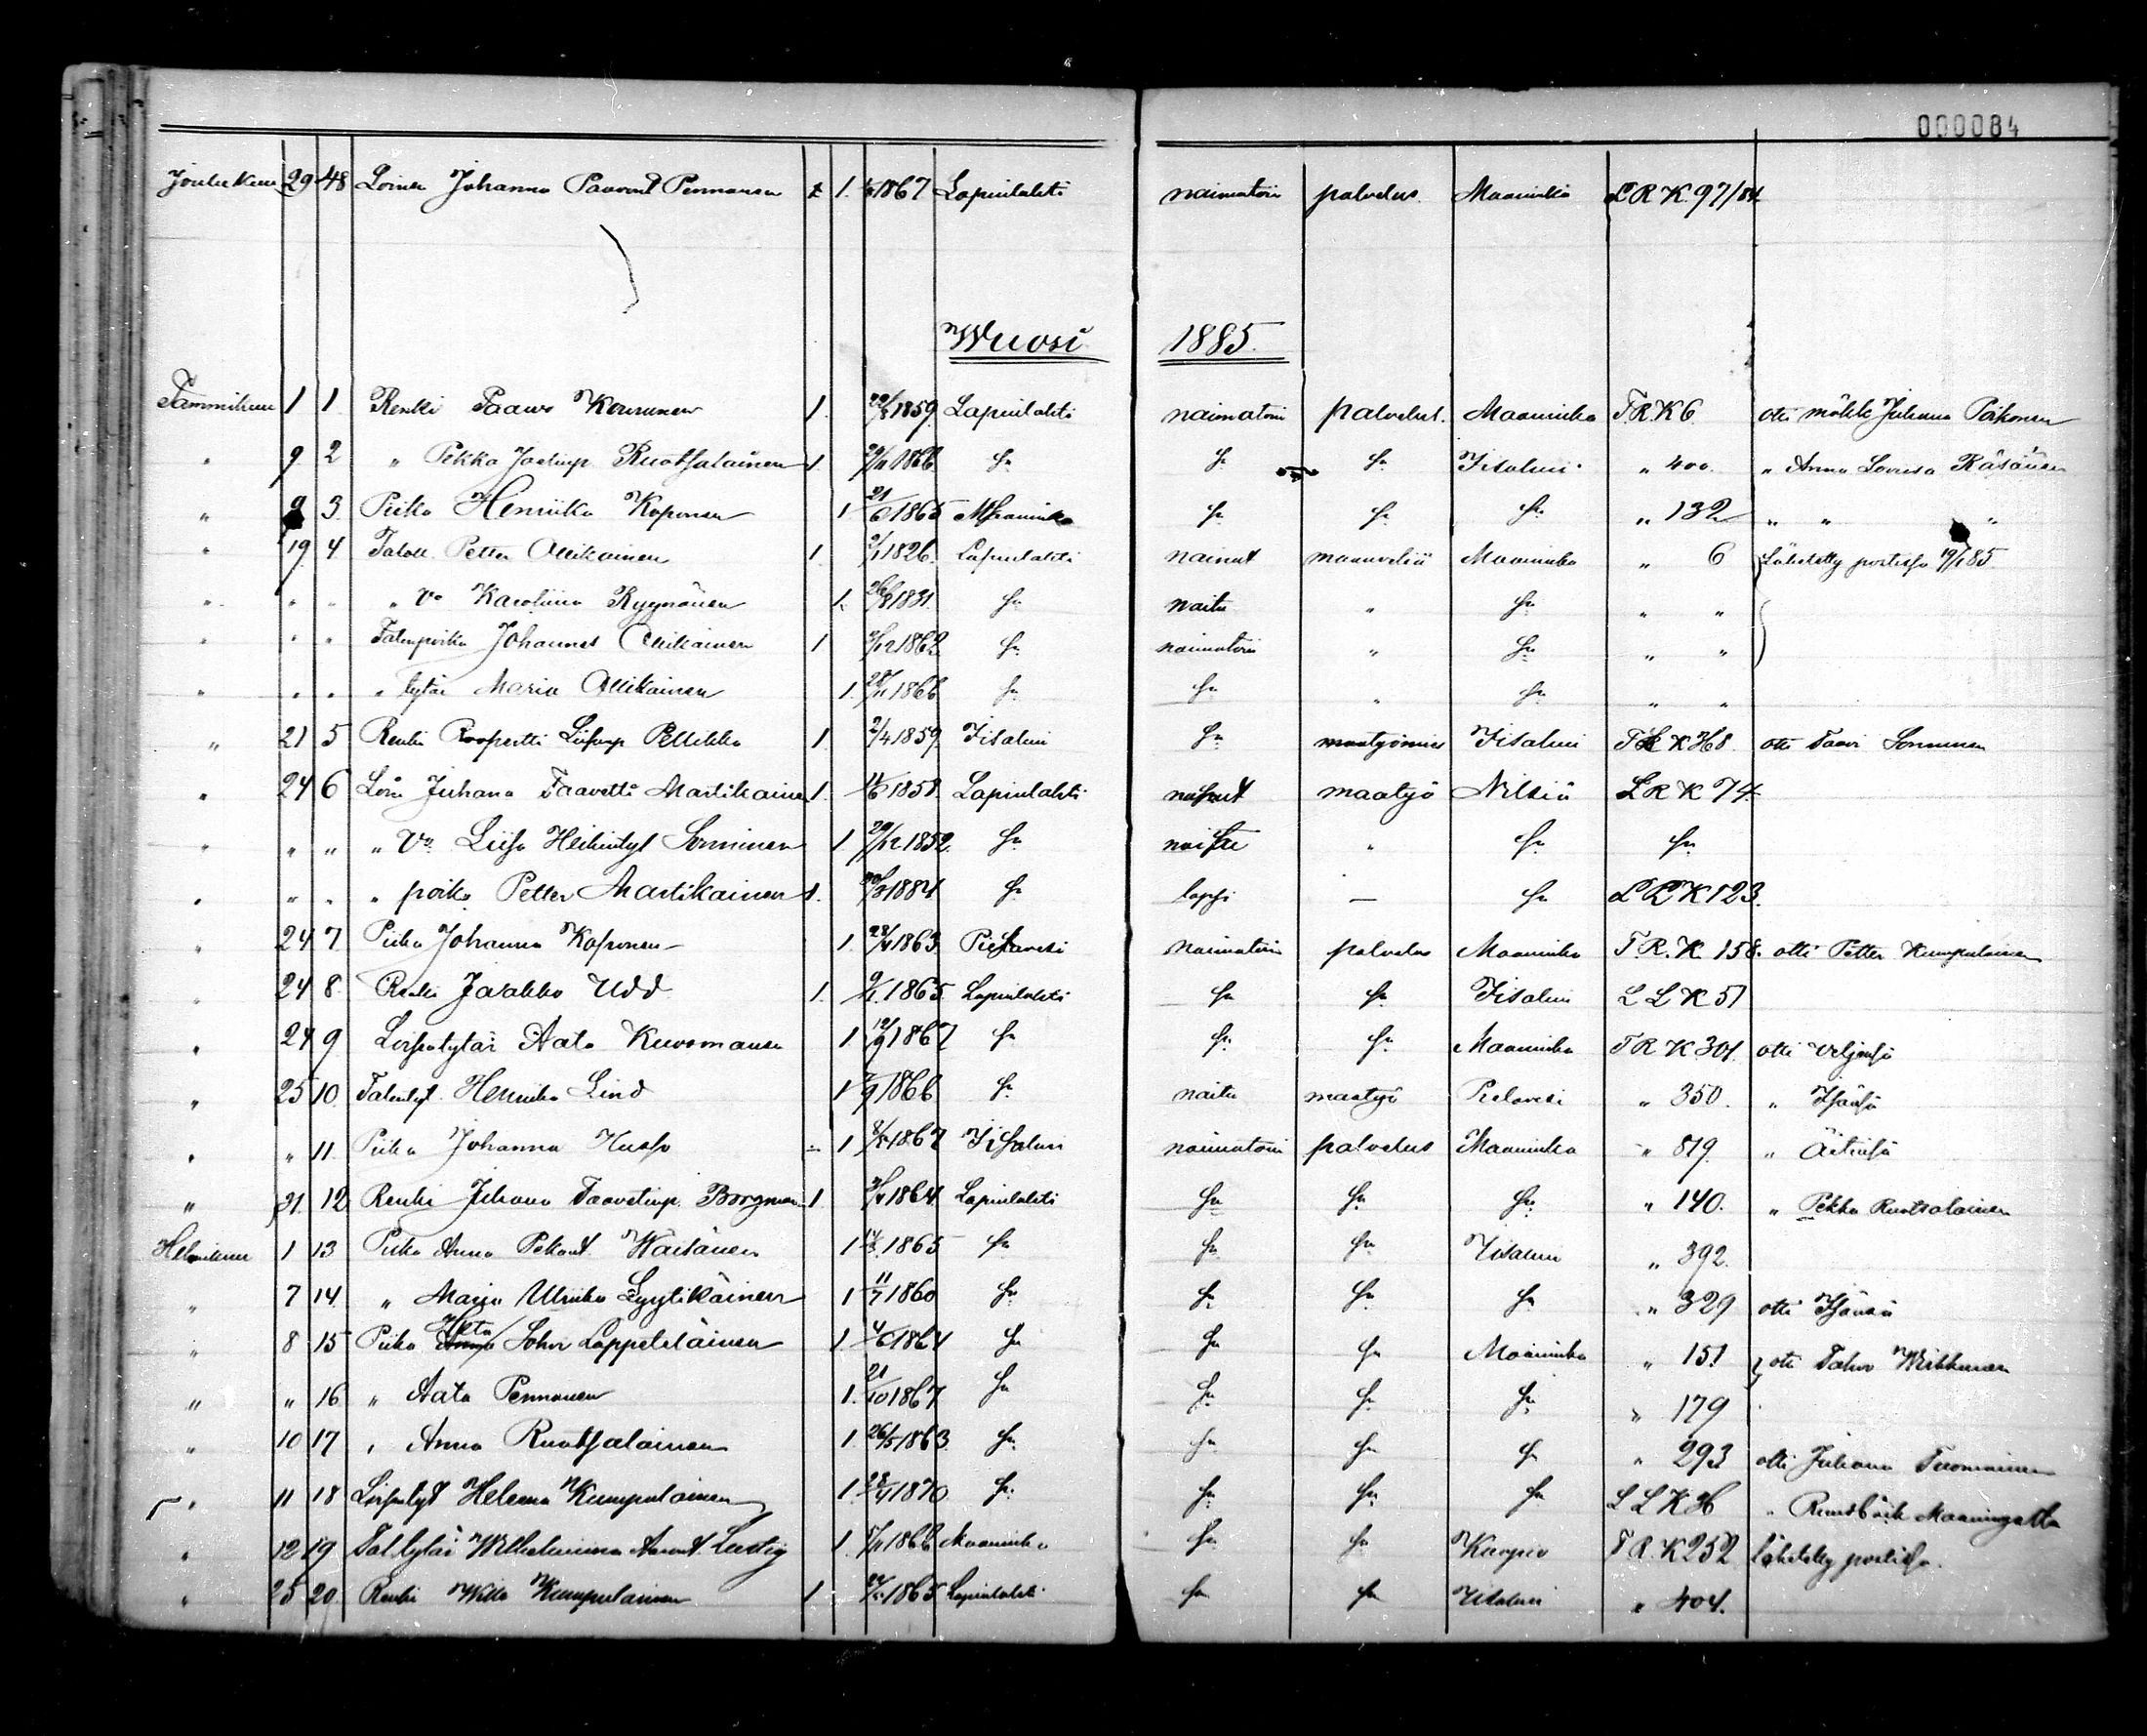 000084
Joulukuu 29 48 Loinen Johanna Paavont Pennanen 1. 1867 Lapinlahti naimatoin palvelus. Maaninka L R K 97/84.
Wuosi 1885.
Tammikuu 1 1 Renki Paavo Korunen 1. 1859. Lapinlahti naimatoin palvelus. Maaninka T.R.K 6. otti mökk Juhana Poikonen
" 9. 2 " Pekka Ruotsalainen 1. 1866 sn sn sn Iisalmi " 400. " Anna Lovisa Räsänen
" 9 3. Piika Henriika Koponen 1 21/6 1865 Maaninka sn sn sn " 132 " " "
" 19 4. Petter Ollikainen 1. 2/1 1826. Lapinlahti nainut maanvilj Maaninka " 6 Lähetetty postissa 19/1 85.
" " " " Vo Karoliina Ryynänen 1. 26/8 1831. sn naitu " sn " "
" " " Talonpoika Johannes Ollikainen 1 /12 1862. sn naimatoin " sn " "
" " " " tytär Maria Ollikainen 1. 28/11 1866 sn sn " sn " "
" 21 5 Renki Roopertti Pellikka 1. 2/4 1859. Iisalmi sn maatyömies Iisalmi otti Taavi Sonninen
" 24 6 Loin Juhana Taavetti Martikainen 1. 11/6 1858. Lapinlahti nainut maatyö Nilsiä L R K 74.
" " " " Vo. Liisa Heikintyt Sonninen 1. 29/12 1852. sn naitu " sn sn
" " " " poika Petter Martikainen 1. 1884 sn lapsi — sn L R K 123.
" 24 7. Piika Johanna Koponen 1. 1863. Pielavesi naimatoin palvelus Maaninka T.R.K. 158. otti Petter Kumpulainen
" 24 8. Renki Jaakko Udd 1. 9/1. 1865. Lapinlahti sn sn Iisalmi L L K 51
" 24 9 Loistytär Aata Kuosmanen 1. 12/9 1867 sn sn sn Maaninka T R K 301. otti veljensä
" 25 10. Talontyt. Henriika Lind 1 /9 1866 sn naitu maatyö Pielavesi " 350. " Isänsä
" " 11. Piika Johanna Husso 1 8/5 1867 Iisalmi naimatoin palvelus Maaninka " 819. " Äitinsä
" 21. 12 Renki Juhana Taavetinp. Borgman 1 1864 Lapinlahti sn sn sn " 140. " Pekka Ruotsalainen
Helmikuu 1 13 Piika Anna Pekant. Waitänen 1 1865 sn sn sn Iisalmi " 392.
" 7 14. " Maija Ulriika Lyytikäinen 1 11/7 1860 sn sn sn sn " 329 otti Isänsä
" 8 15 Piika Heta Sohvi Lappeteläinen 1. 4/6 1864 sn sn sn Maaninka " 151 otti Tahvo Wikkunen
" " 16 " Aata Pennanen 1. 21/10 1867 sn sn sn sn " 179
" 10 17 " Anna Ruotsalainen 1. 26/5 1863. sn sn sn sn " 293 otti Juhana Tuomainen
" 11 18 Loistyt Helena Kumpulainen 1. 1870 sn sn sn sn L L K 36 " Maaningalta
" 12 19 Taltytär Wilhelmiina Lustig 1. 1866 Maaninka sn sn Kuopio T R. K 252 lähetetty postissa.
" 25 20. Renki Wille Kumpulainen 1 1865 Lapinlahti sn sn Iisalmi " 404.